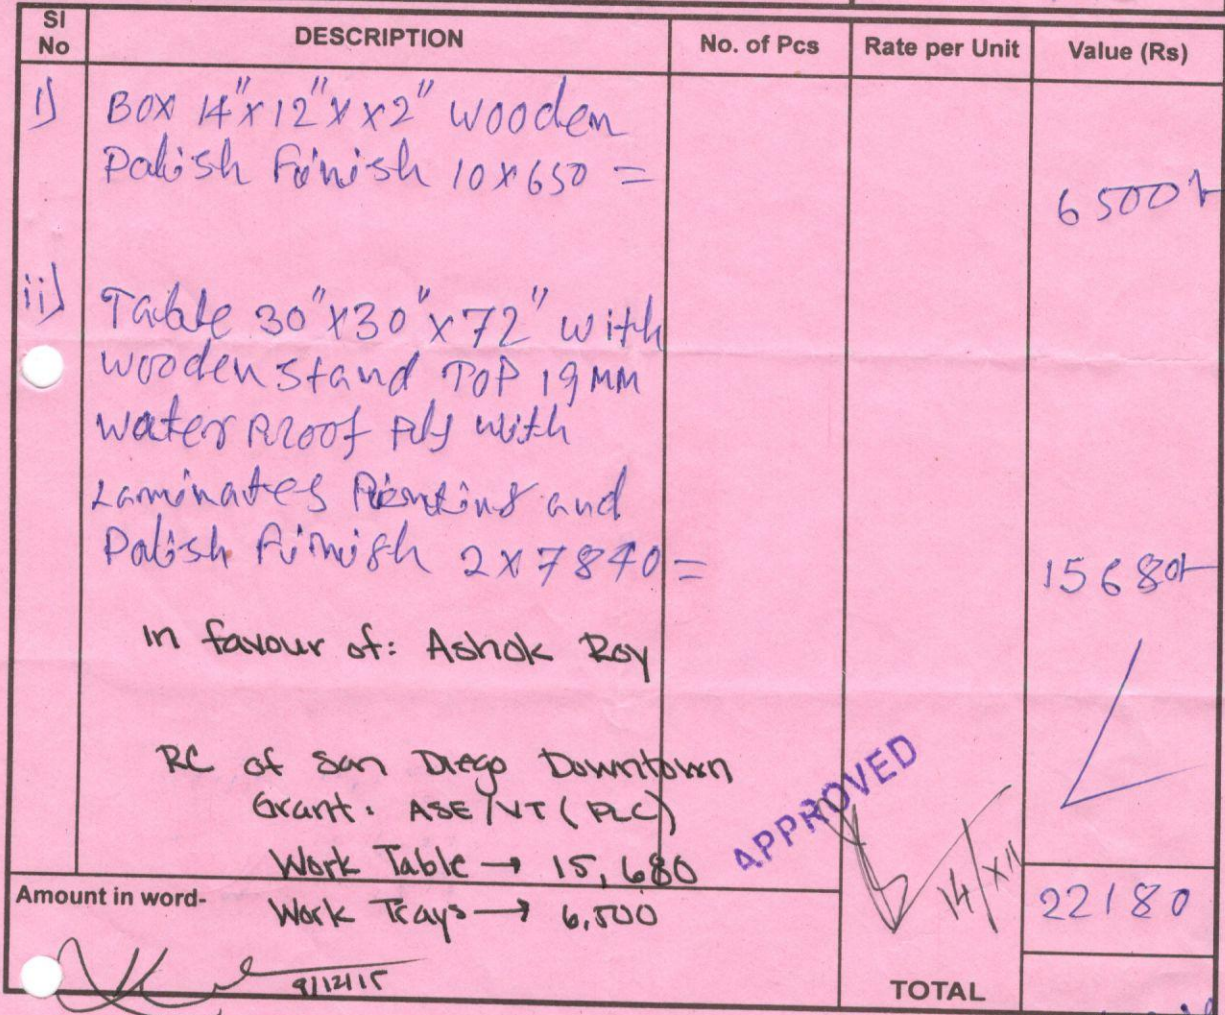 Sl No DESCRIPTION No. of Pcs Rate per Unit Value (Rs)
i) Box 14"x12"x x2" wooden
Polish Finish 10x650 = 6500/-
ii) Table 30"x30"x72" with
wooden stand TOP 19 MM
water Proof Ply with
Laminates and
Polish Finish 2x7840 = 15680/-
in favour of: Ashok Roy
RC of San Diego Downtown
Grant: ASE/VT (PLC)
APPROVED
Work Table → 15,680
14/XII
Amount in word-
Work Trays → 6,500
22180
9/12/15
TOTAL